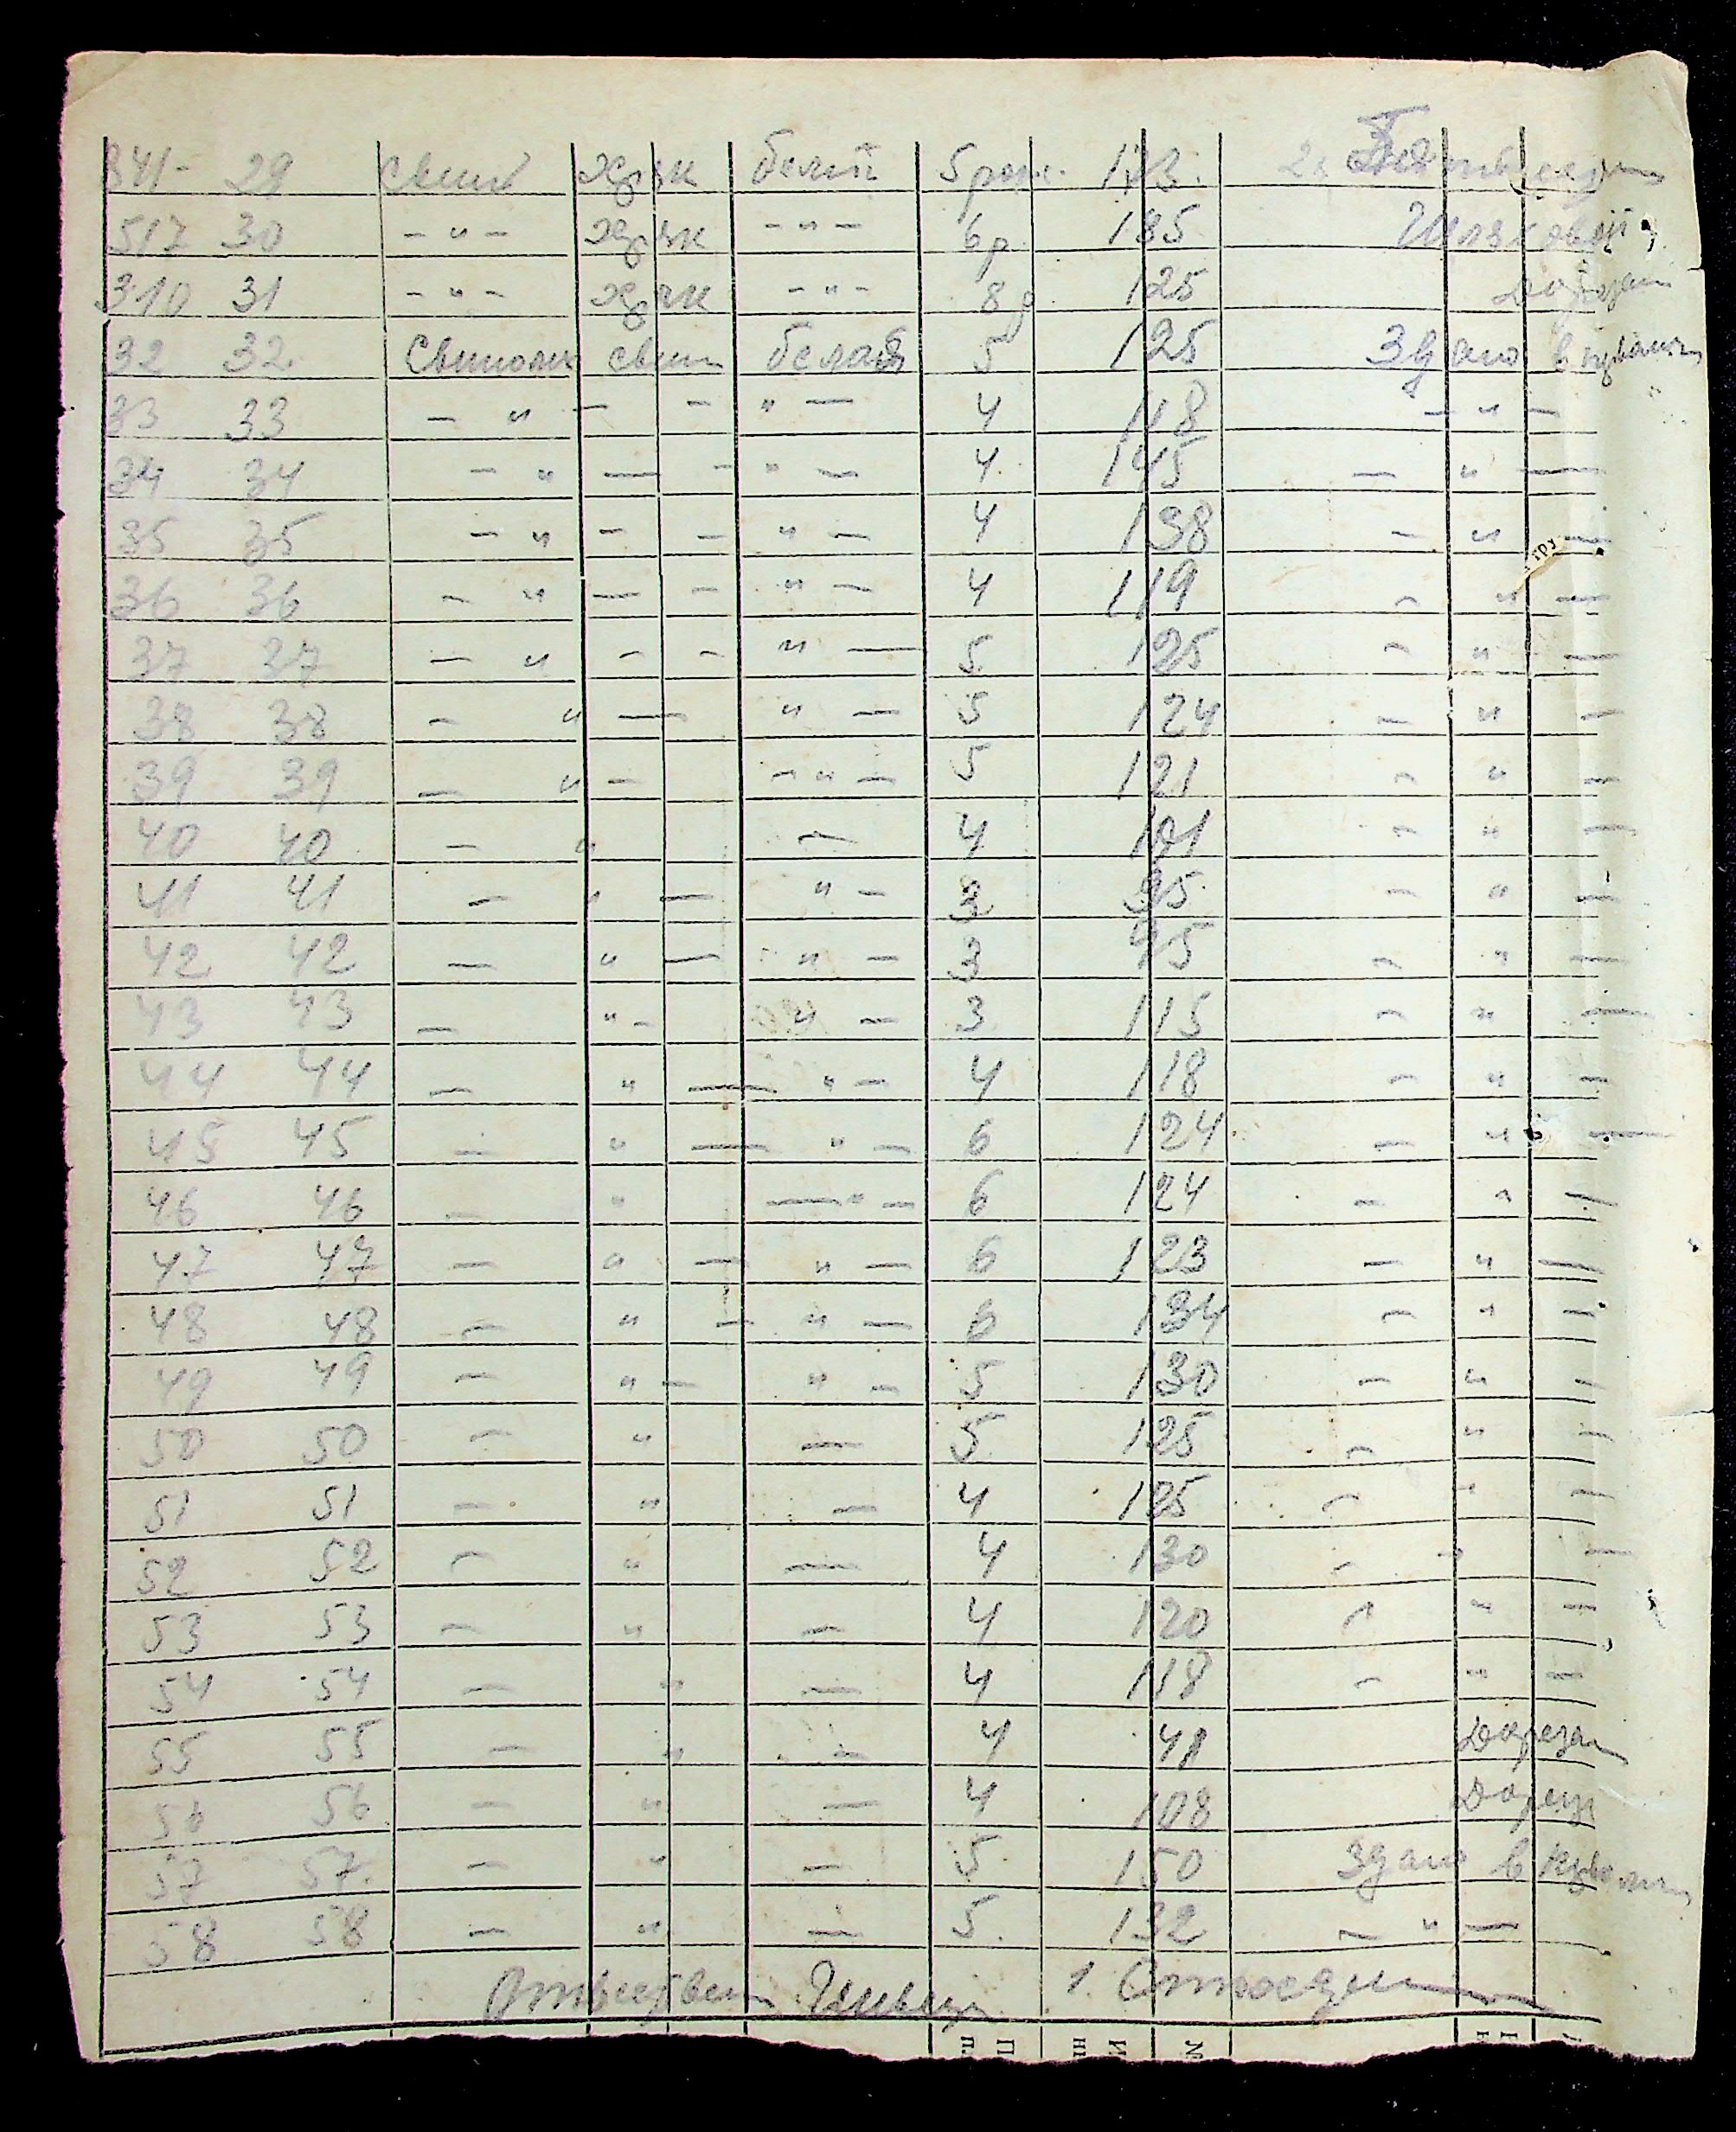 341- 29 свин хряк белый 5 рож. 1,83.
517 30 - " - хряк - " - 6 р 185
310 31 - " - хряк - " - 8 р 125 Дорезан
32 32. Свиномк свин белая 5 125 Здано в
33 33 - " - - " - 4 118 - " -
34 34 - " - - " - 4. 145 - " -
35 35 - " - - " - 4 138 - " -
36 36 - " - - " - 4 119 - " -
37 37 - " - - " - 5. 125 - " -
38 38 - " - " - 5 124 - " -
39 39 - " - - " - 5 121 - " -
40 40 - " - 4 101 - " -
41 41 - " - " - 3 95 - " -
42 42 - " - " - 3 95 - " -
43 43 - " - " - 3 115 - " -
44 44 - " - " - 4 118 - " -
45 45 - " - " - 6 124 - " -
46 46 - " - " - 6 124 - " -
47 47 - " - " - 6 123 - " -
48 48 - " - " - 6 134 - " -
49 49 - " - " - 5 130 - " -
50 50 - " - 5. 125 - " -
51 51 - " - 4 125 - " -
52 52 - " - 4 130 - " -
53 53 - " - 4 120 - " -
54 54 - " - 4 118 - " -
55 55 - " - 4 41 Дорезан
56 56 - " - 4 108 Дорезан
57 57. - " - 5. 150 Здано в
58 58 - " - 5. 132 - " -